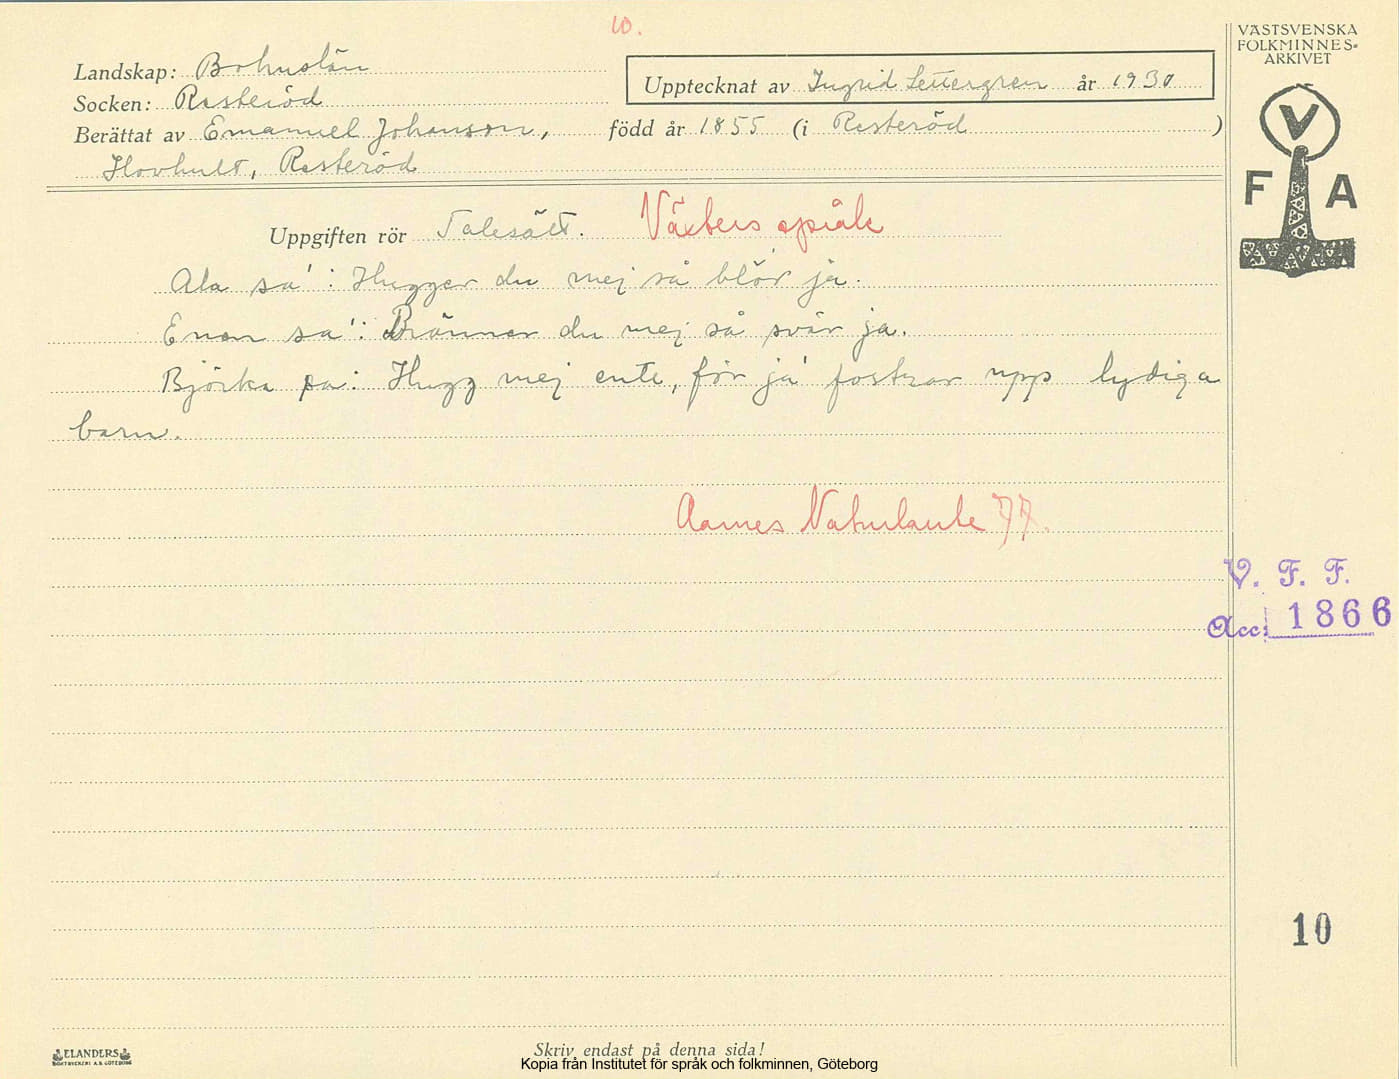 10.
VÄSTSVENSKA
FOLKMINNES-
ARKIVET
Landskap: Bohuslän
Upptecknat av Ingrid Settergren år 1930
Socken: Resteröd
Berättat av Emanuel Johanson, född år 1855 (i Resteröd )
Hovhult, Resteröd
V
F A
Uppgiften rör Talesätt. Växters språk
Ala sa': Hugger du mej så blör ja.
Enen sa': Bränner du mej så svär ja.
Björka sa: Hugg mej ente, för ja' fostrar upp lydiga
barn.
Aarnes Naturlaute 77.
V. F. F.
Acc: 1866
10
ELANDERS
BOKTRYCKERI A.B. GÖTEBORG
Skriv endast på denna sida!
Kopia från Institutet för språk och folkminnen, Göteborg